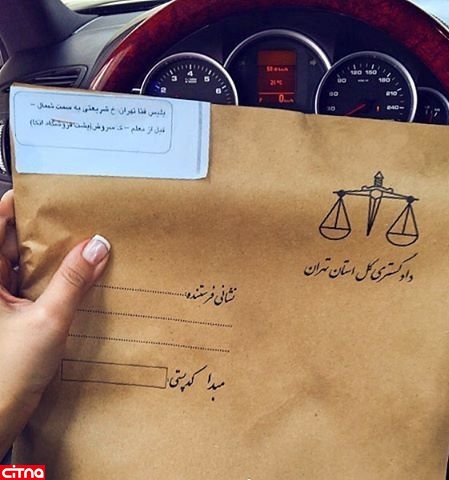 پلیس فتا تهران: خ شریعتی به سمت شمال –
قبل از معلم – خ سروش(پشت فروشگاه اتکا)
دادگستری کل استان تهران
نشانی فرستنده:
مبدا کدپستی:
CITNA